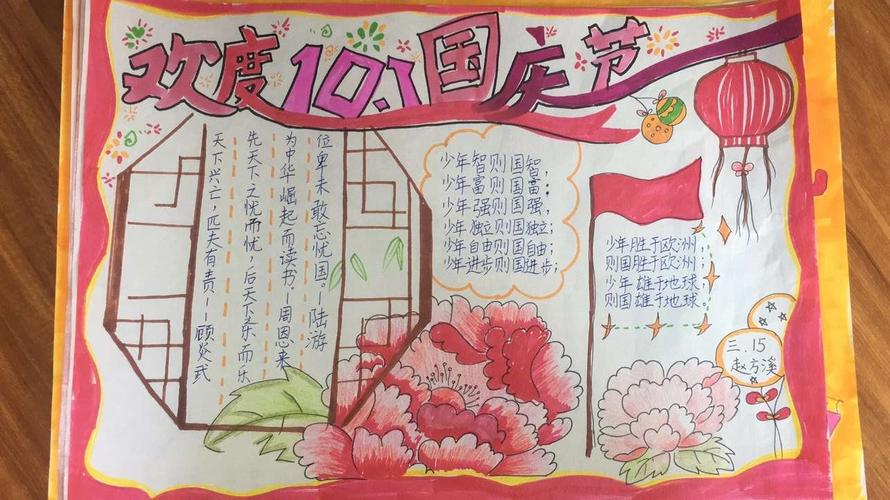 欢度10.1国庆节
位卑未敢忘忧国——陆游
为中华崛起而读书——周恩来
先天下之忧而忧，后天下乐而乐
天下兴亡，匹夫有责——顾炎武
少年智则国智，
少年富则国富；
少年强则国强，
少年独立则国独立；
少年自由则国自由；
少年进步则国进步；
少年胜于欧洲，
则国胜于欧洲；
少年雄于地球
则国雄于地球。
三.15
赵方溪